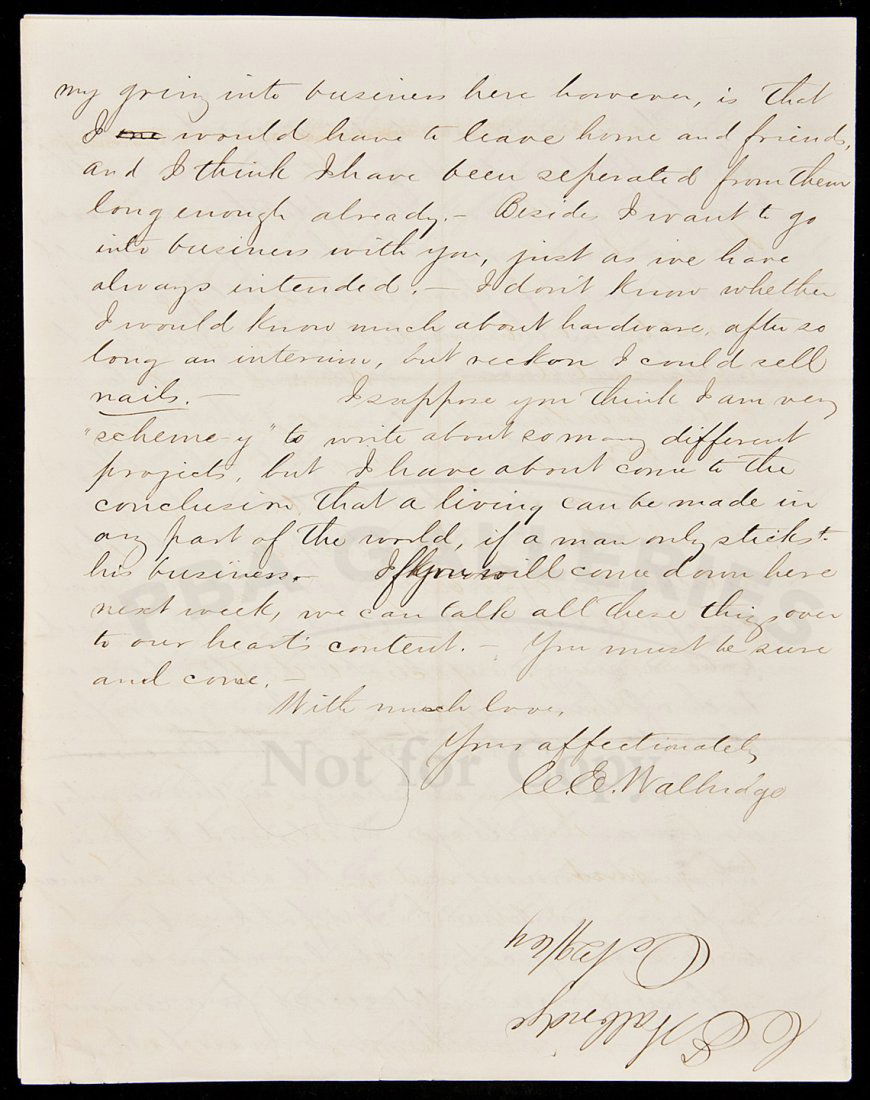 my going into business here however, is that
I one would have to leave home and friends,
and I think I have been seperated from them
long enough already. – Besides I want to go
into business with you, just as we have
always intended. – I don't know whether
I would know much about hardware, after so
long an interim, but reckon I could sell
nails. – I suppose you think I am very
"scheme-y" to write about so many different
projects, but I have about come to the
conclusion that a living can be made in
any part of the world, if a man only sticks to
his business. – If you will come down here
next week, we can talk all these things over
to our heart's content. – You must be sure
and come. –
With much love,
Your affectionately
C. E. Walbridge
PBA GALLERIES
Not for Copy
C E Walbridge